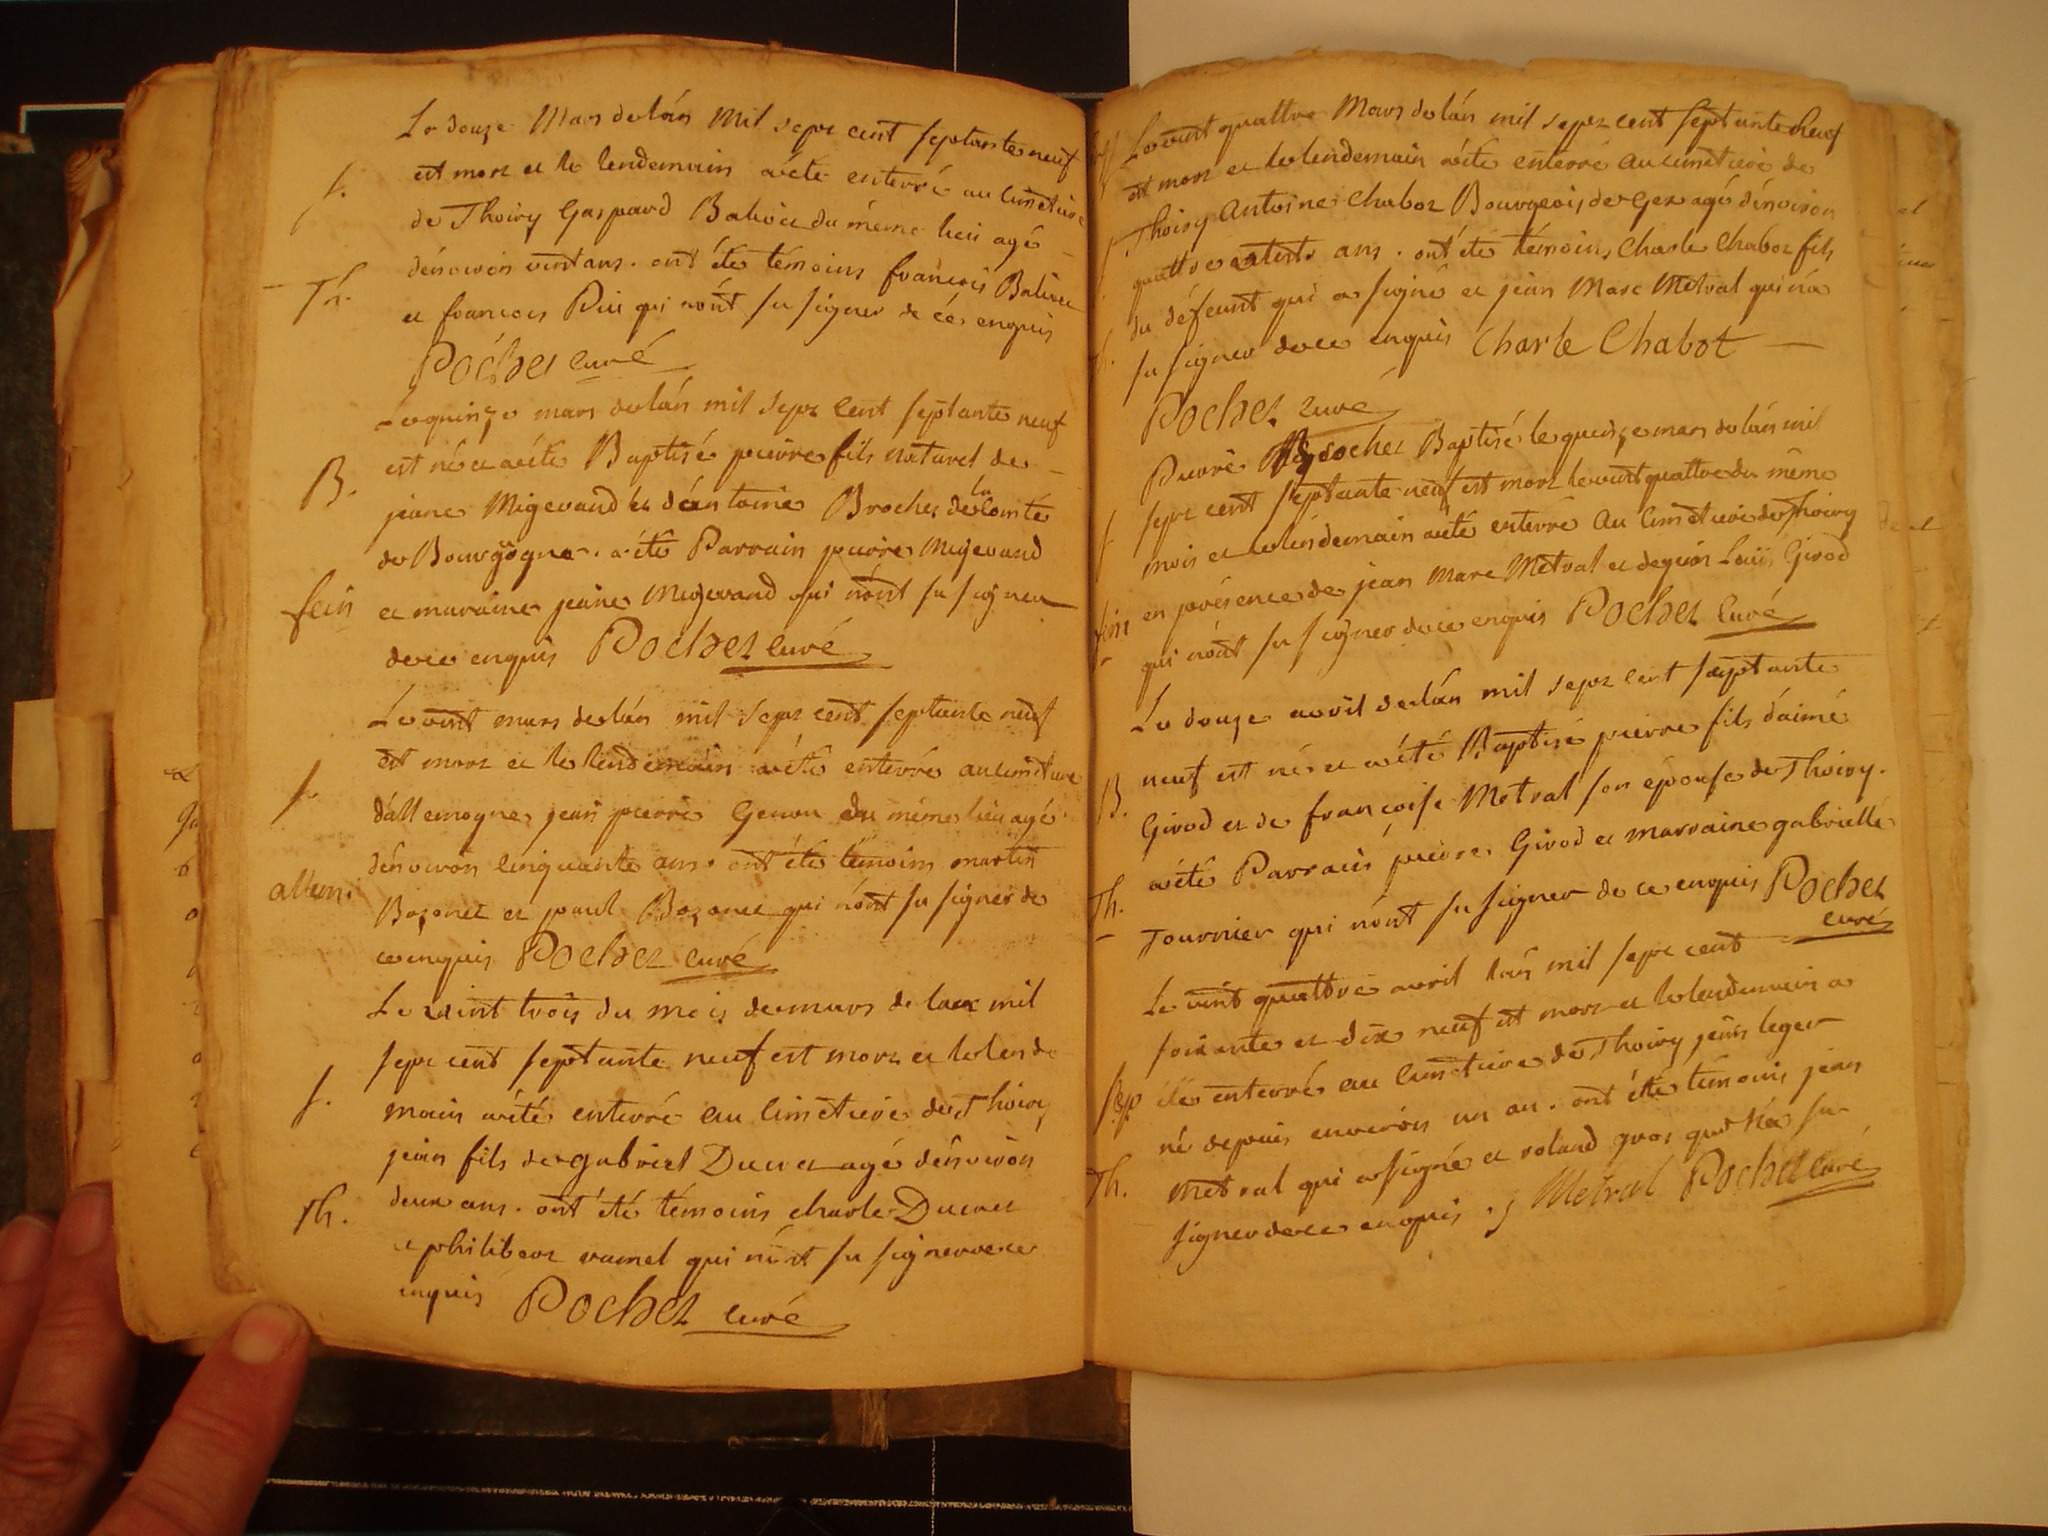 Le douze Mars de lán Mil sept cent septante neuf
S. est mort et le lendemain a été enterré au cimetiere
de Thoiry Gaspard Balivet du même lieu agé
Th. dénviron vint ans. ont été témoins françois Balivet
et francois Pin qui nónt su signer de ce enquis
Pochet curé
Le quinze mars de lán mil sept cent septante neuf
B. est né et a été Baptisé pierre fils naturel de
jeane Migevand et d'antoine Brochet de la Comté
de Bourgogne. a été Parrain pierre Migevand
fein et maraine jeane Migevand qui nónt su signer
de ce enquis Pochet curé
Le vint mars de lán mil sept cent septante neuf
S. est mort et le lendemain a été enterré au cimetiere
dállemogne jean pierre Genou du même lieu agé
dénviron cinquante ans. ont été témoins martin
allem. Bozonet et paul Bozonet qui nónt su signer de
ce enquis Pochet curé
Le vint trois du mois de mars de lan mil
sept cent septante neuf est mort et le lende
S. main a été enterré au cimetiere de Thoiry
jean fils de gabriel Ducret agé dénviron
Th. deux ans. ont été témoins charle Ducret
et philibert ramel qui nónt su signer de ce
enquis Pochet curé
Le vint quattre Mars de lán mil sept cent septante neuf
est mort et le lendemain a été enterré au cimetiere de
Thoiry Antoine Chabot Bourgeois de Gex agé dénviron
quattre vints ans. ont été témoins Charle Chabot fils
du défeunt qui a signé et jean Marc Metral qui ná
su signer de ce enquis Charle Chabot
Pochet curé
Pierre Brochet Baptisé le quinze mars de lán mil
S. sept cent septante neuf est mort le vint quattre du même
mois et le lendemain a été enterré au cimetiere de Thoiry
fein en présence de jean Marc Metral et de jean Louis Girod
qui nónt su signer de ce enquis Pochet curé
Le douze avril de lán mil sept cent septante
B. neuf est né et a été Baptisé pierre fils daimé
Girod et de françoise Metral son épouse de Thoiry.
Th. a été Parrain pierre Girod et marraine gabrielle
Tournier qui nónt su signer de ce enquis Pochet
curé
Le vint quattre avril lán mil sept cent
soixante et dix neuf est mort et le lendemain a
été enterré au cimetiere de Thoiry jean leger
né depuis environ un an. ont été témoins jean
Th. Metral qui a signé et roland gros qui ná su
signer de ce enquis. j Metral Pochet curé